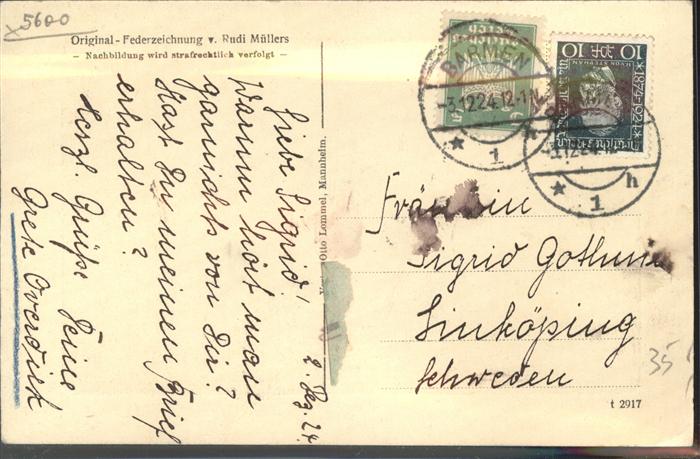 5600
Original - Federzeichnung v. Rudi Müllers
— Nachbildung wird strafrechtlich verfolgt —
2. Dez. 24.
Liebe Sigrid!
Warum hört man
garnichts von Dir?
Hast Du meinen Brief
erhalten?
Herzl. Grüße Deine
Grete Overdick
Otto Lommel, Mannheim.
BARMEN
-3.12.24.12-1 N.
* 1 h
10 10
*1874-1924*
* 1 h
Fräulein
Sigrid Gothune
Linköping
Schweden
35
t 2917